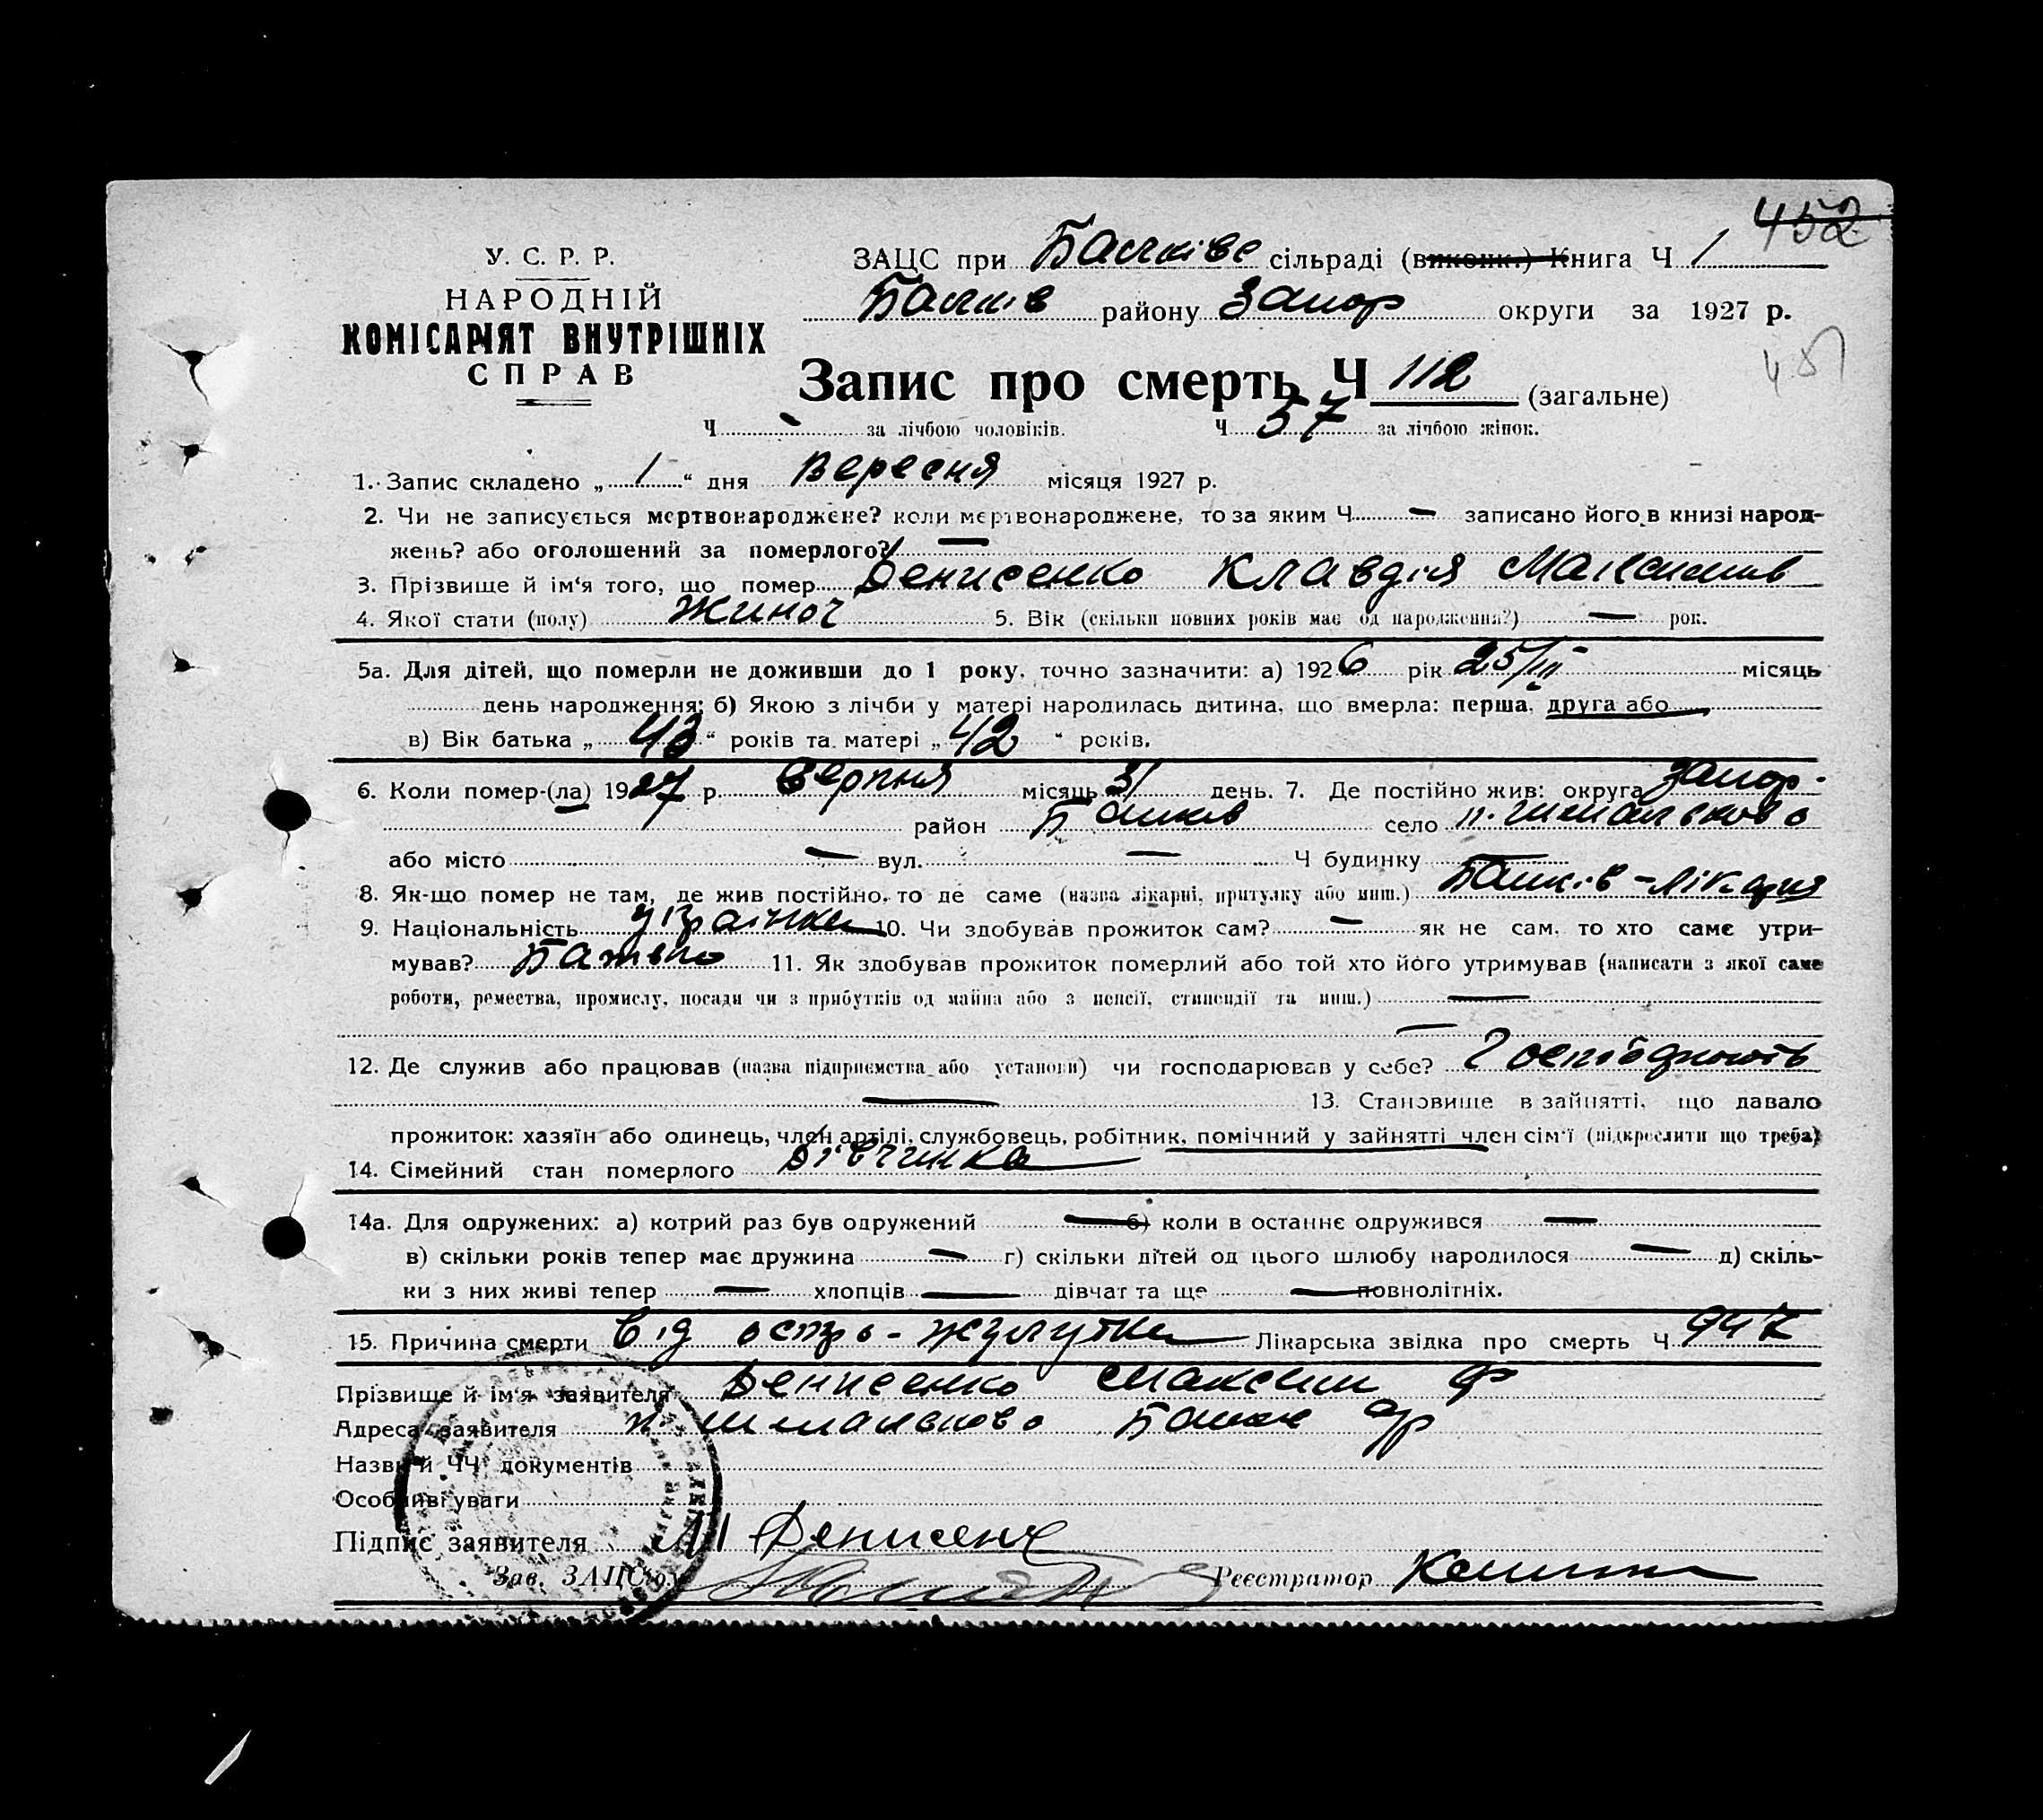 452
У. С. Р. Р.
НАРОДНІЙ
КОМІСАРІЯТ ВНУТРІШНІХ
СПРАВ
ЗАЦС при Балківс сільраді (виконк.) Книга Ч 1
Балків району Запор округи за 1927 р.
451
Запис про смерть Ч 112 (загальне)
Ч - за лічбою чоловіків. Ч 57 за лічбою жінок.
1. Запис складено „ 1 “ дня Вересня місяця 1927 р.
2. Чи не записується мертвонароджене? коли мертвонароджене, то за яким Ч — записано його в книзі народ-
жень? або оголошений за померлого? —
3. Прізвище й ім'я того, що помер Денисенко Клавдія Максимів
4. Якої стати (полу) жиноч 5. Вік (скільки повних років має од народження?) — рок.
5а. Для дітей, що померли не доживши до 1 року, точно зазначити: а) 1926 рік 25/III місяць
день народження; б) Якою з лічби у матері народилась дитина, що вмерла: перша, друга або
в) Вік батька „ 43 “ років та матері „ 42 “ років.
6. Коли помер-(ла) 1927 р. Серпня місяць 31 день. 7. Де постійно жив: округа Запор-
район Балків село
або місто — вул. — Ч будинку
8. Як-що помер не там, де жив постійно, то де саме (назва лікарні, притулку або инш.) Балків-лікарня
9. Національність українка 10. Чи здобував прожиток сам? — як не сам, то хто саме утри-
мував? Батько 11. Як здобував прожиток померлий або той хто його утримував (написати з якої саме
роботи, ремества, промислу, посади чи з прибутків од майна або з пенсії, стипендії та инш.) —
—
12. Де служив або працював (назва підприємства або установи) чи господарював у себе?
— 13. Становище в зайнятті, що давало
прожиток: хазяїн або одинець, член артілі, службовець, робітник, помічний у зайнятті член сім'ї (підкреслити що треба)
14. Сімейний стан померлого дівчинка
14а. Для одружених: а) котрий раз був одружений — б) коли в останнє одружився —
в) скільки років тепер має дружина — г) скільки дітей од цього шлюбу народилося — д) скіль-
ки з них живі тепер — хлопців — дівчат та ще — повнолітніх.
15. Причина смерти від Лікарська звідка про смерть Ч 947
Прізвище й ім'я заявителя Денисенко Максим Ф
Адреса заявителя
Назви й ЧЧ документів
Особливі уваги
Підпис заявителя М Денисенк
Зав. ЗАЦС'у Реєстратор